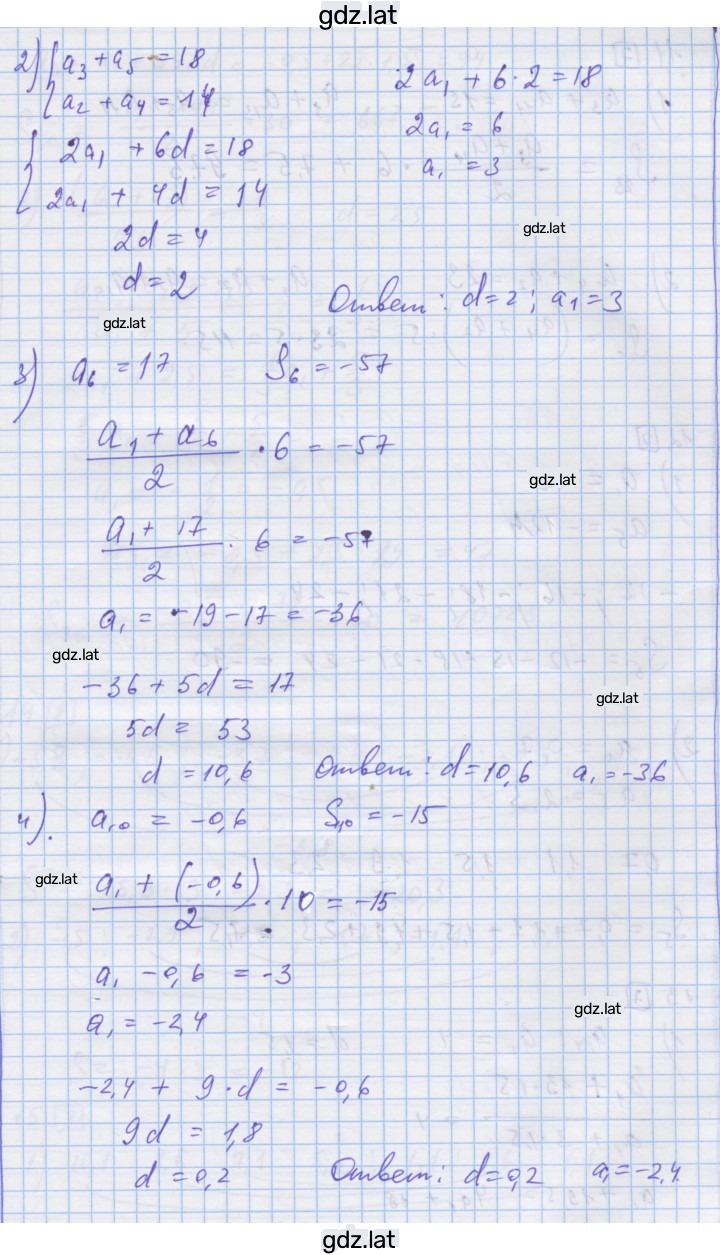 gdz.lat
2) { a₃ + a₅ = 18
a₂ + a₄ = 14
{ 2a₁ + 6d = 18
2a₁ + 4d = 14
2d = 4
d = 2
2a₁ + 6·2 = 18
2a₁ = 6
a₁ = 3
gdz.lat
Ответ: d = 2; a₁ = 3
gdz.lat
3) a₆ = 17 S₆ = -57
(a₁ + a₆)/2 · 6 = -57
gdz.lat
(a₁ + 17)/2 · 6 = -57
a₁ = -19 - 17 = -36
gdz.lat
-36 + 5d = 17
gdz.lat
5d = 53
d = 10,6 Ответ: d = 10,6 a₁ = -36
4). a₁₀ = -0,6 S₁₀ = -15
gdz.lat
(a₁ + (-0,6))/2 · 10 = -15
a₁ - 0,6 = -3
gdz.lat
a₁ = -2,4
-2,4 + 9·d = -0,6
9d = 1,8
d = 0,2 Ответ: d = 0,2 a₁ = -2,4.
gdz.lat